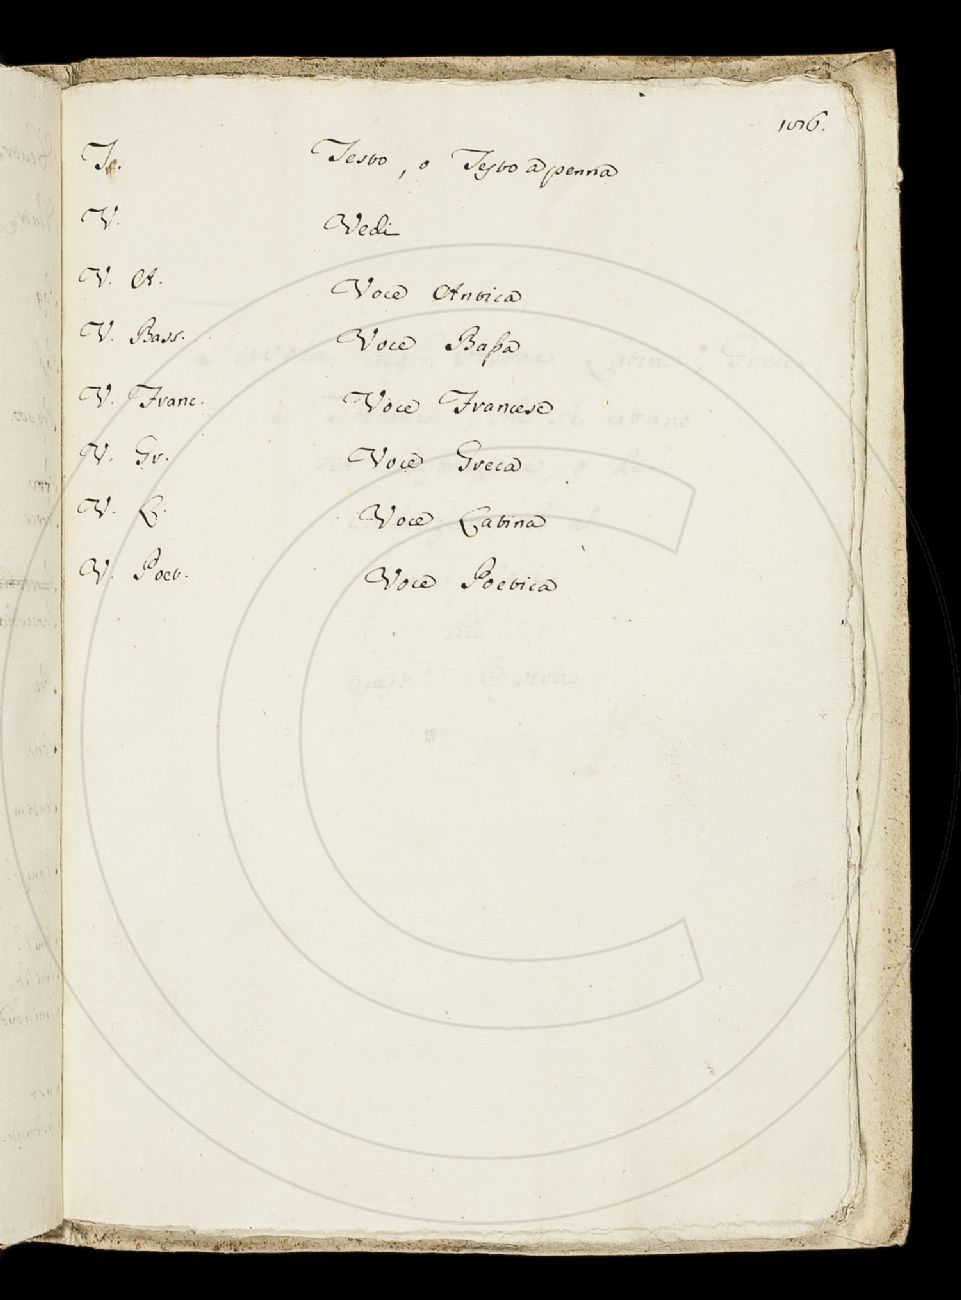 1016.
T. Testo, o Testo a penna
V. Vedi
V. A. Voce Antica
V. Bass. Voce Bassa
V. Franc. Voce Francese
V. Gr. Voce Greca
V. L. Voce Latina
V. Poet. Voce Poetica